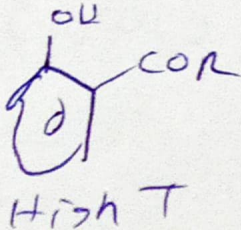 OH
COR
High T